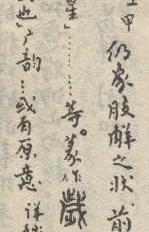 上甲 仍象肢解之状 前
星」……等。篆作
也」广韵…或有原意 详